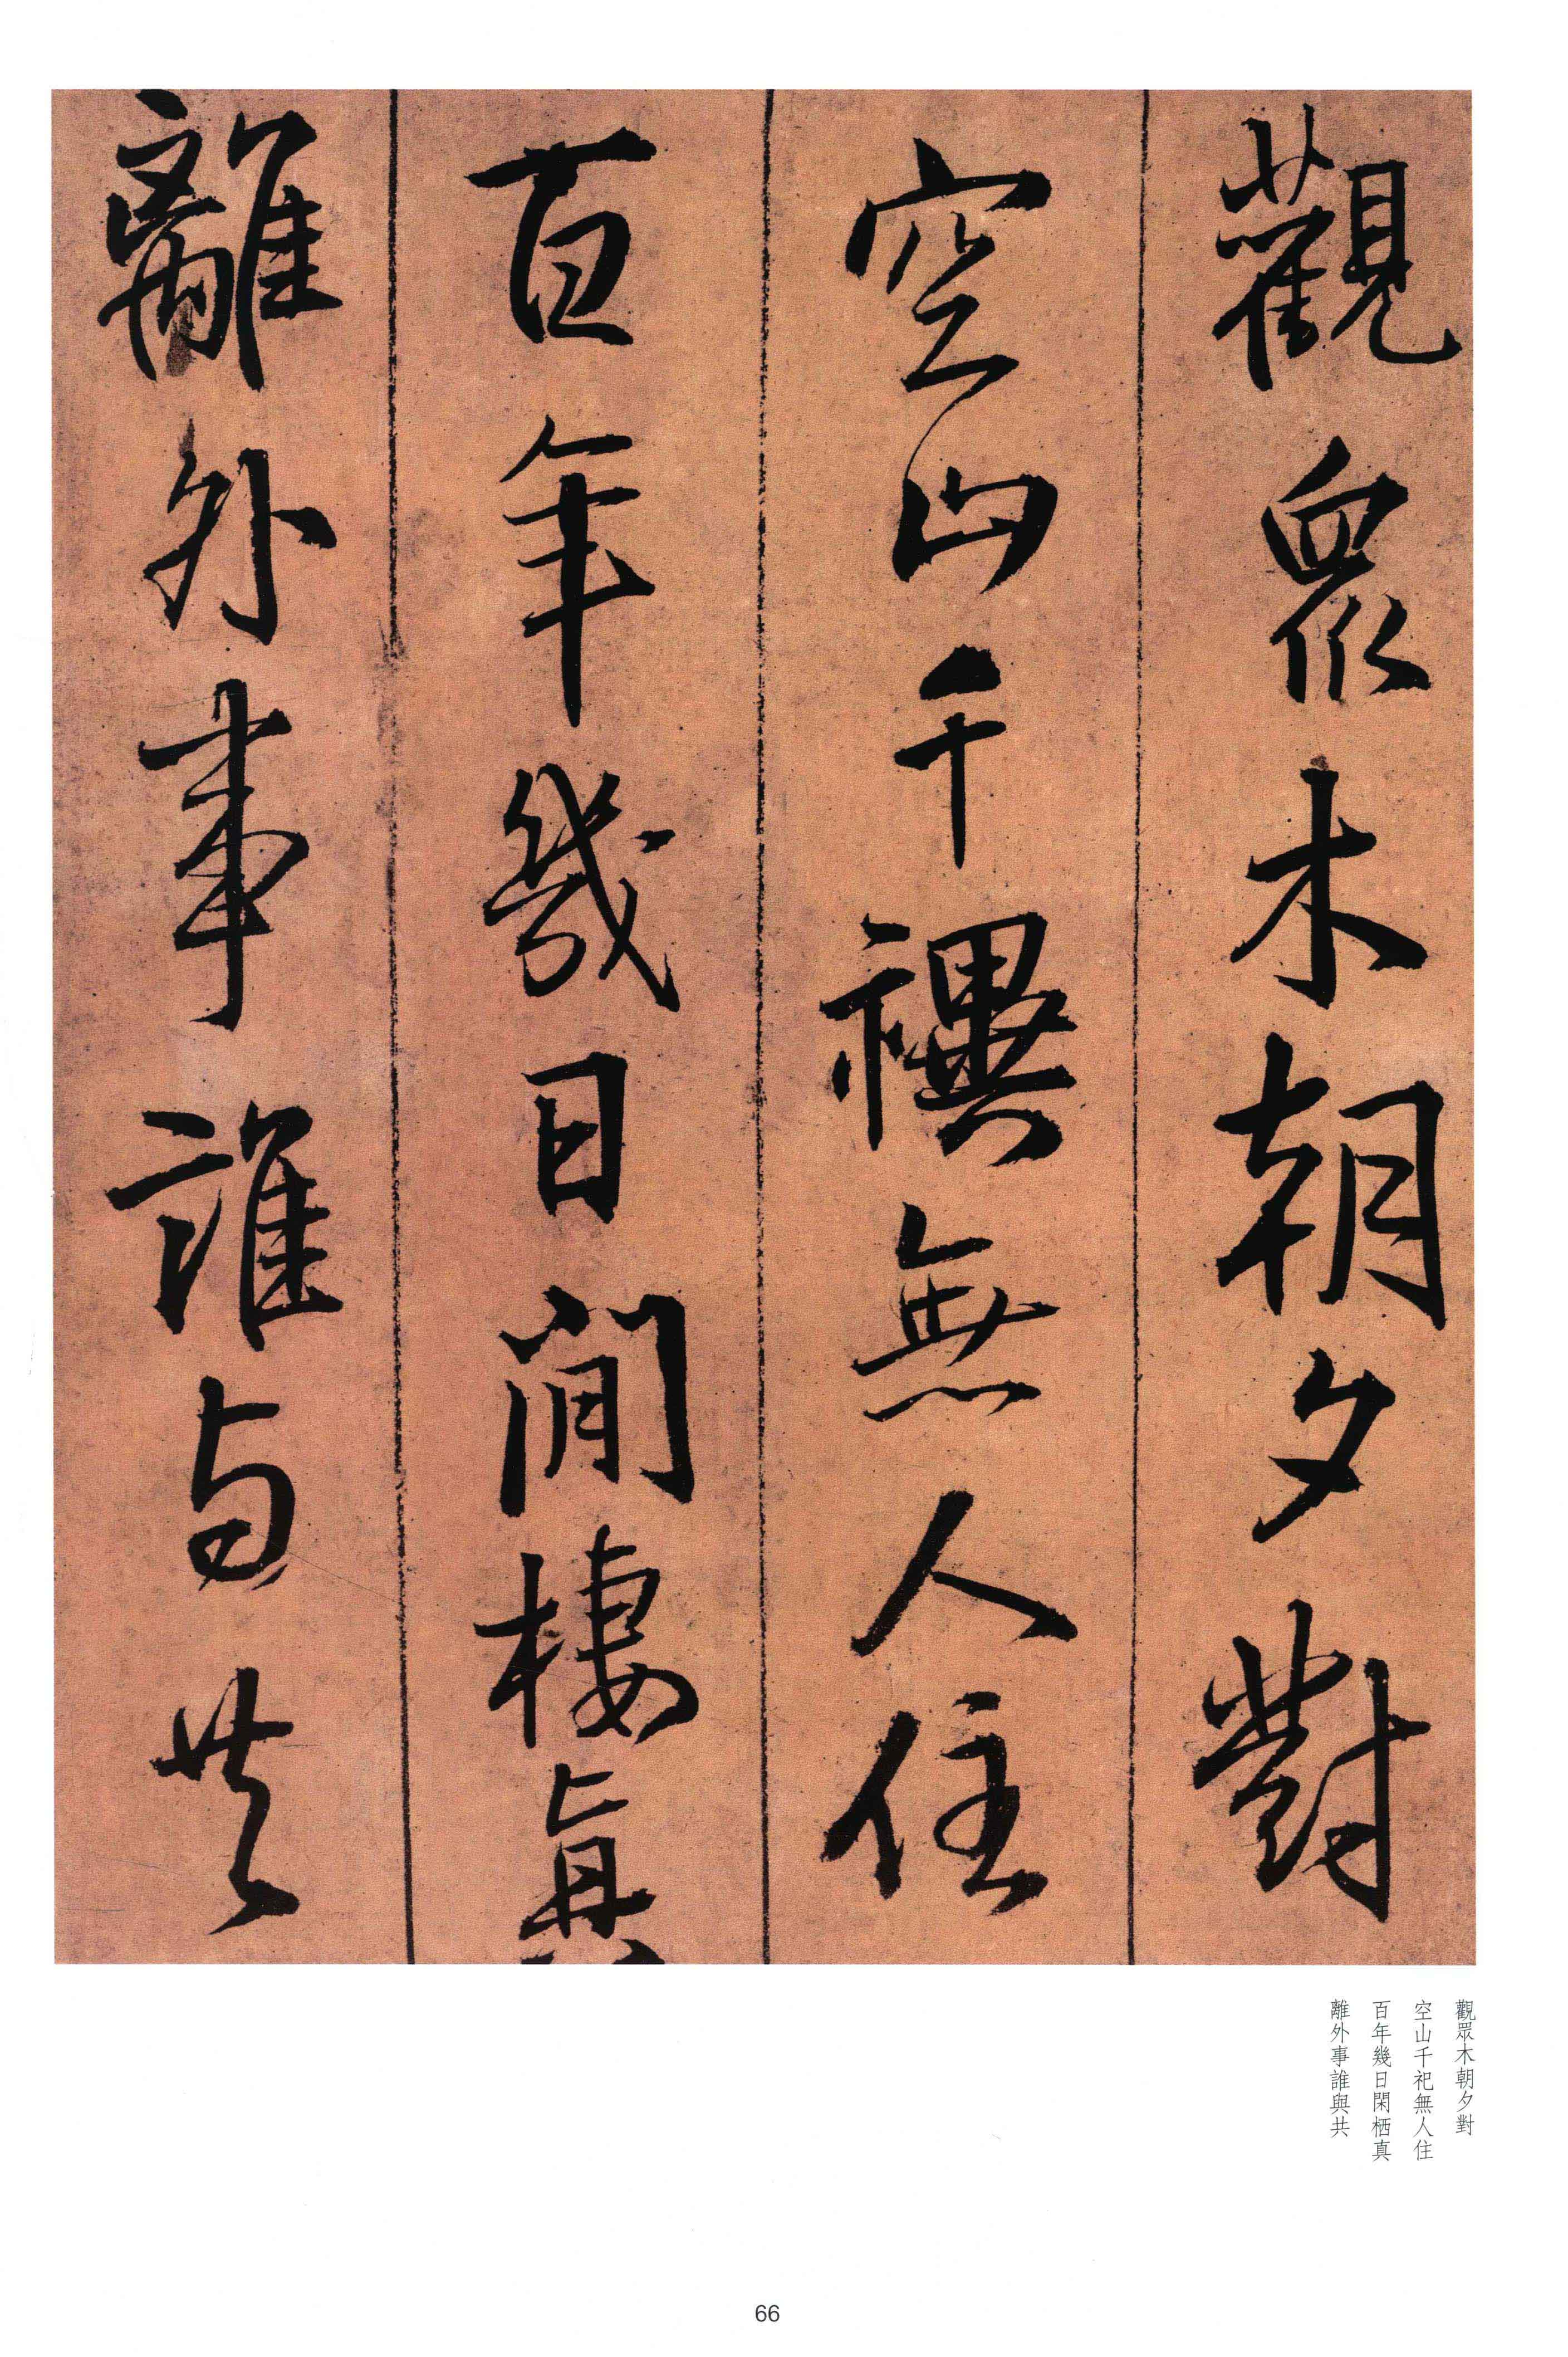 觀衆木朝夕對
空山千禩無人住
百年幾日閒棲真
離外事誰与共
觀眾木朝夕對
空山千祀無人住
百年幾日閑栖真
離外事誰與共
66